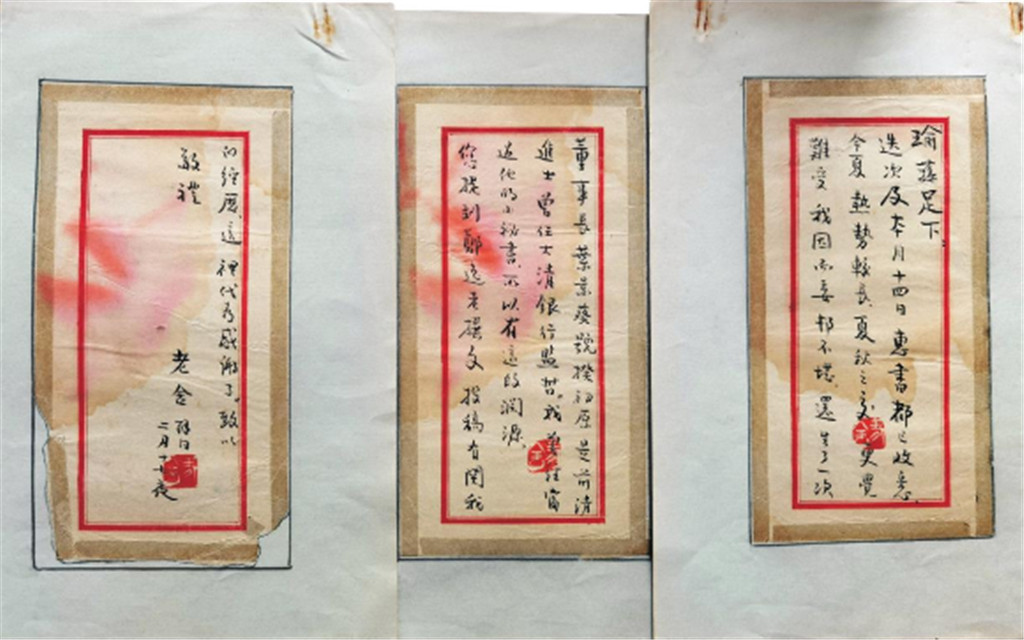 瑜蓀足下。
迭次及本月十四日惠書都已收悉
今夏熱勢較長夏秋之交更覺
難受我因而委頓不堪還生了一次
董事長葉景葵號揆初原是前清
進士曾任大清銀行監督。我曾任當
過他的小秘書所以有這段淵源。
您提到鄭逸老撰文投稿有関我
的經歷這裡代為感谢了。致以
敬禮
老舍
二月十七夜